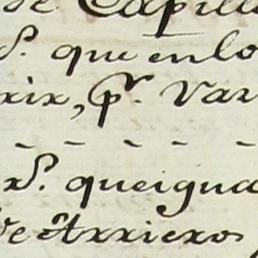 de Capilla
S. que en lo
rir, pr. Var
rS. que igua
de Arrieros